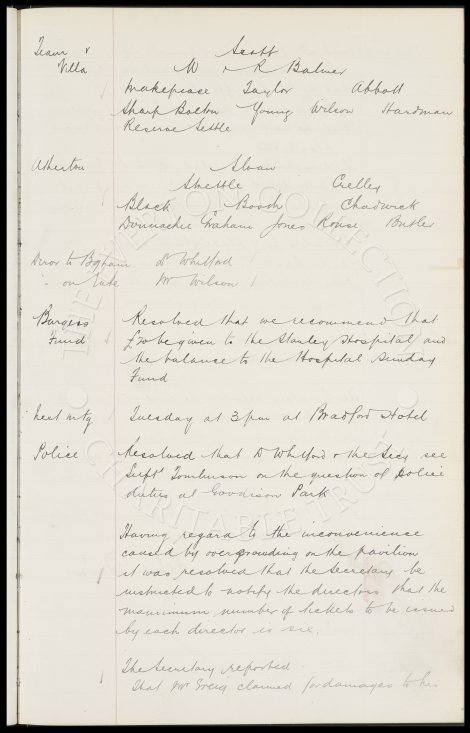 Team v Scott
Villa W & R Balmer
Makepeace Taylor Abbott
Sharp Bolton Young Wilson Hardman
Reserve Settle
Atherton Sloan
Skettle Crelley
Black Booth Chadwick
Dunnachie Graham Jones Rouse Butler
Director to Bpham D Whitford
" on Tuke Mr Wilson
Burgess Resolved that we recommend that
Fund £20 be given to the Stanley Hospital and
the balance to the Hospital Sunday
Fund
Next mtg Tuesday at 3 pm at Bradford Hotel
Police Resolved that D Whitford & the Secy see
Supt Tomlinson on the question of police
duties at Goodison Park
Having regard to the inconvenience
caused by overcrowding on the pavilion
it was resolved that the Secretary be
instructed to notify the directors that the
maximum number of tickets to be issued
by each director is six.
The Secretary reported
That Mr Greig claimed for damages to his
THE EVERTON COLLECTION
CHARITABLE TRUST